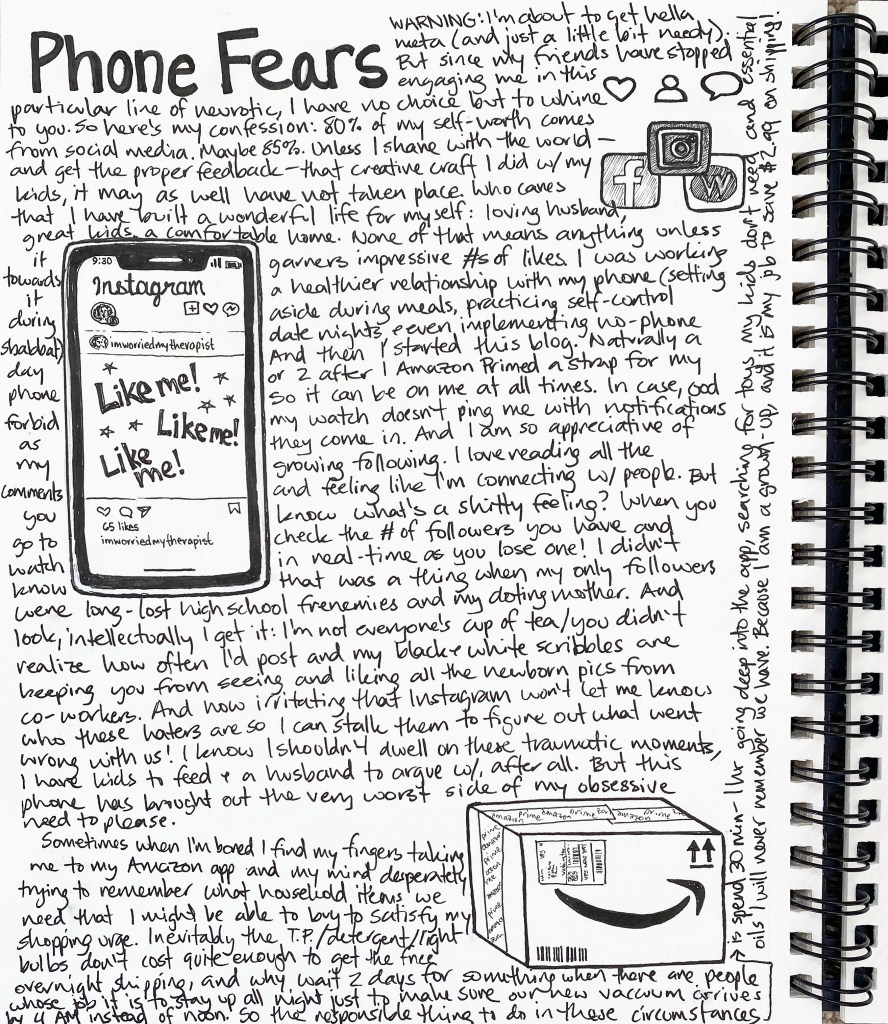 Phone Fears
WARNING: I'm about to get hella
meta (and just a little bit needy).
But since my friends have stopped
engaging me in this
particular line of neurotic, I have no choice but to whine
to you. So here's my confession: 80% of my self-worth comes
from social media. Maybe 85%. Unless I share with the world —
and get the proper feedback — that creative craft I did w/ my
kids, it may as well have not taken place. Who cares
that I have built a wonderful life for myself: loving husband,
great kids, a comfortable home. None of that means anything unless
it garners impressive #s of likes. I was working
towards a healthier relationship with my phone (setting
it aside during meals, practicing self-control
during date nights + even implementing no-phone
shabbat) And then I started this blog. Naturally a
day or 2 after I Amazon Primed a strap for my
phone so it can be on me at all times. In case, God
forbid my watch doesn't ping me with notifications
as they come in. And I am so appreciative of
my growing following. I love reading all the
comments and feeling like I'm connecting w/ people. But
you know what's a shitty feeling? When you
go to check the # of followers you have and
watch in real-time as you lose one! I didn't
know that was a thing when my only followers
were long-lost high school frenemies and my doting mother. And
look, intellectually I get it: I'm not everyone's cup of tea/you didn't
realize how often I'd post and my black + white scribbles are
keeping you from seeing and liking all the newborn pics from
co-workers. And how irritating that Instagram won't let me know
who these haters are so I can stalk them to figure out what went
wrong with us! (I know I shouldn't dwell on these traumatic moments,
I have kids to feed + a husband to argue w/, after all. But this
phone has brought out the very worst side of my obsessive
need to please.
Sometimes when I'm bored I find my fingers taking
me to my Amazon app and my mind desperately
trying to remember what household items we
need that I might be able to buy to satisfy my
shopping urge. Inevitably the T.P./detergent/light
bulbs don't cost quite enough to get the free
overnight shipping, and why wait 2 days for something when there are people
whose job it is to stay up all night just to make sure our new vacuum arrives
by 4 AM instead of noon. So the responsible thing to do in these circumstances
→ is spend 30 min - 1 hr going deep into the app, searching for toys my kids don't need and essential
oils I will never remember we have. Because I am a grown-up, and it is my job to save $2.99 on shipping!
f
W
9:30
Instagram
imworriedmytherapist
Like me!
Like me!
Like
me!
65 likes
imworriedmytherapist
prime amazon prime amazon prime